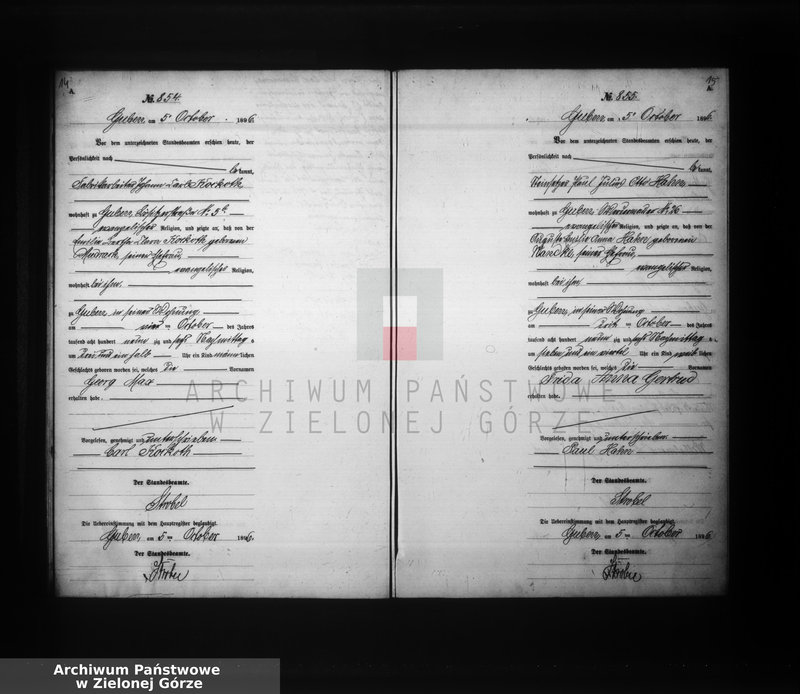 14
A.
№ 854.
Guben am 5. October 1896.
Vor dem unterzeichneten Standesbeamten erschien heute, der
Persönlichkeit nach
bekannt,
Fabrikarbeiter Johann Carl Kockoth
wohnhaft zu Guben, № 5
evangelischer Religion, und zeigte an, daß von der
Kockoth geborenen
seiner Ehefrau,
evangelischer Religion,
wohnhaft bei ihm,
zu Guben, in seiner Wohnung
am October des Jahres
tausend acht hundert neunzig und sechs Nachmittags
um drei und ein halb Uhr ein Kind männlichen
Geschlechts geboren worden sei, welches die Vornamen
Georg Max
erhalten habe.
Vorgelesen, genehmigt und unterschrieben
Carl Kockoth
Der Standesbeamte.
Strobel
Die Uebereinstimmung mit dem Hauptregister beglaubigt
Guben, am 5ten October 1896.
Der Standesbeamte.
Strobel
15
A.
№ 855.
Guben, am 5. October 1896.
Vor dem unterzeichneten Standesbeamten erschien heute, der
Persönlichkeit nach
bekannt,
Paul Julius Otto Hahn
wohnhaft zu Guben, № 26
evangelischer Religion, und zeigte an, daß von der
Anna Hahn geborenen
seiner Ehefrau,
evangelischer Religion,
wohnhaft bei ihm,
zu Guben, in seiner Wohnung
am October des Jahres
tausend acht hundert neunzig und sechs Nachmittags
um sieben und ein viertel Uhr ein Kind weiblichen
Geschlechts geboren worden sei, welches die Vornamen
Frida Anna Gertrud
erhalten habe.
Vorgelesen, genehmigt und unterschrieben
Paul Hahn
Der Standesbeamte.
Strobel
Die Uebereinstimmung mit dem Hauptregister beglaubigt
Guben, am 5ten October 1896.
Der Standesbeamte.
Strobel
ARCHIWUM PAŃSTWOWE
W ZIELONEJ GÓRZE
Archiwum Państwowe
w Zielonej Górze